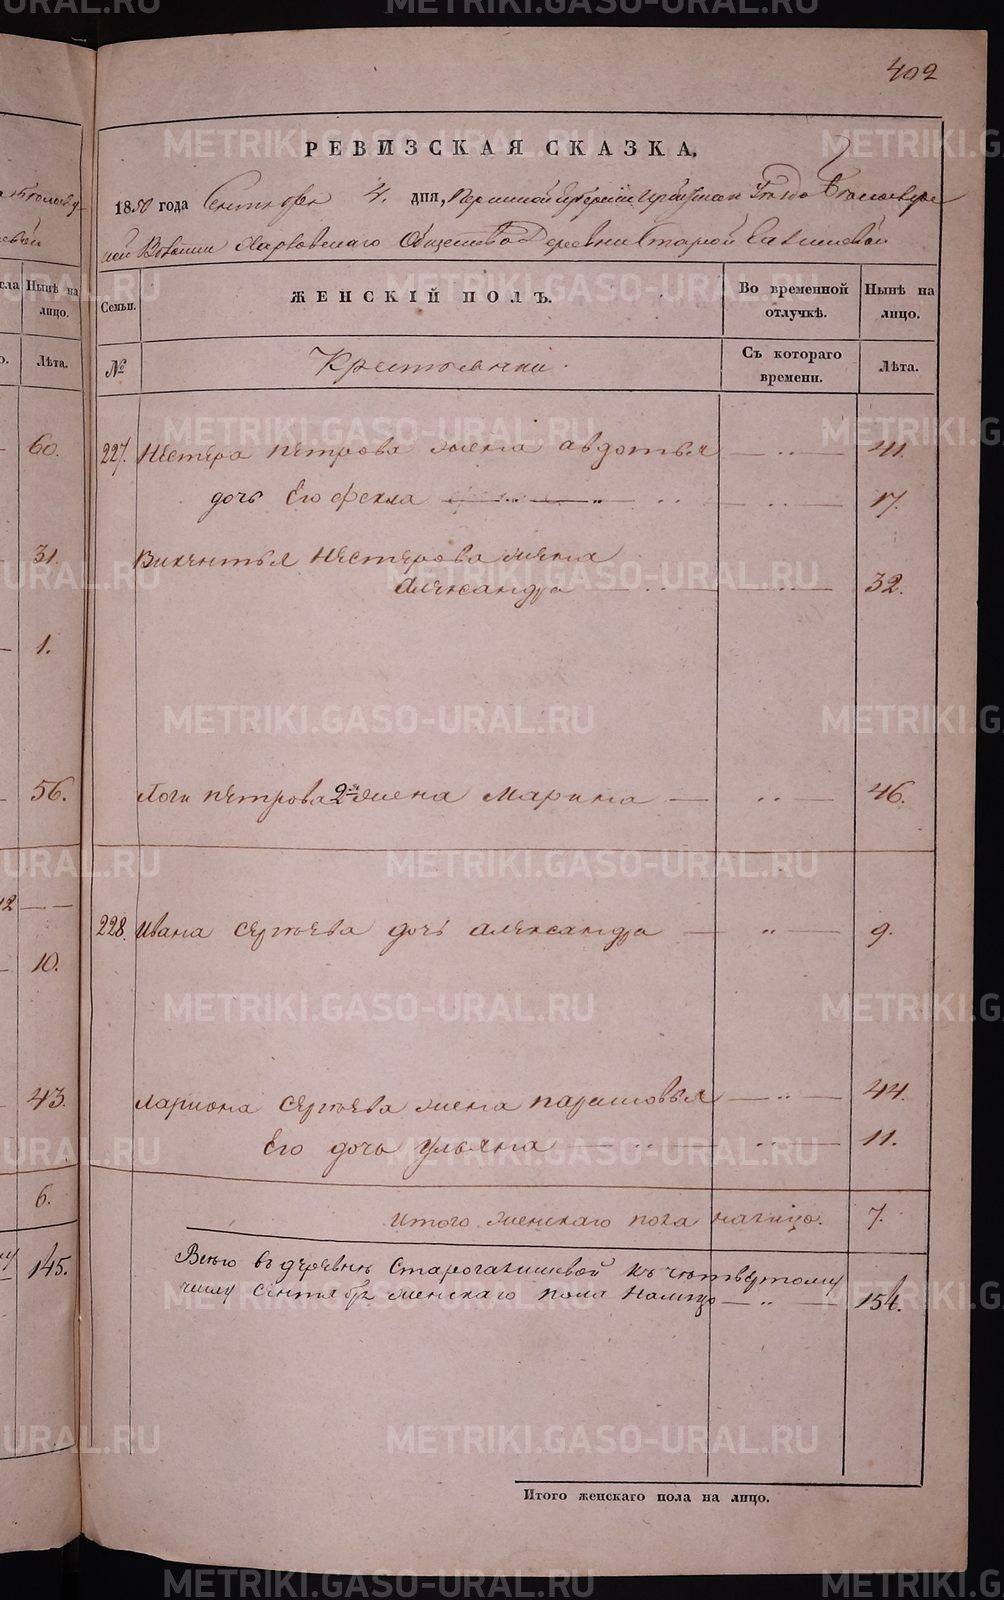 402
РЕВИЗСКАЯ СКАЗКА,
1850 года Сентября 4. дня, Пермской Губернии Ирбитскаго Уезда
ской Волости Харловскаго Общества Деревни Старой Гаишевой
Семьи. ЖЕНСКІЙ ПОЛЪ. Во временной отлучкѣ. Нынѣ на лицо.
№ Крестьянки. Съ котораго времени. Лѣта.
227. Нестера Петрова жена Авдотья — " — 41.
дочь Его Фекла — " — 17.
Викентья Нестерова жена
Александра — " — 32.
Петрова 2я жена Марина — " — 46.
228. Ивана Сергѣева дочь Александра — " — 9.
Лариона Сергѣева жена Парасковья — " — 44.
Его дочь Ульяна — " — 11.
Итого женскаго пола налицо. 7.
Всего въ деревнѣ къ четвертому
числу Сентября женскаго пола Налицо — " — 154.
Итого женскаго пола на лицо.
сла Нынѣ на лицо.
о. Лѣта.
60.
31.
1.
56.
12 — —
10.
43.
6.
145.
METRIKI.GASO-URAL.RU